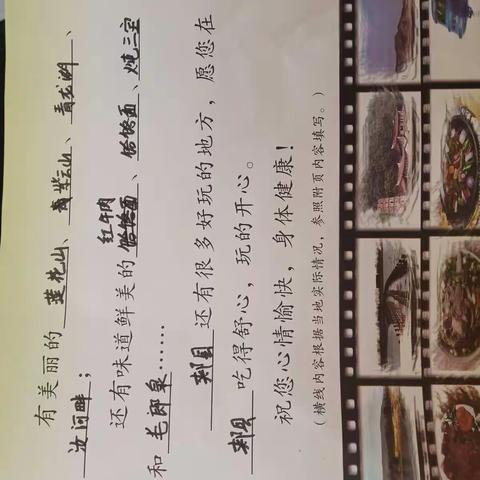 有美丽的莲花山、紫云山、青龙湖、
汝河畔；
红牛肉
还有味道鲜美的饸饹面、饸饹面、炖三宝
和毛郎……
郏县还有很多好玩的地方，愿您在
郏县吃得舒心，玩的开心。
祝您心情愉快，身体健康！
（横线内容根据当地实际情况，参照附页内容填写。）